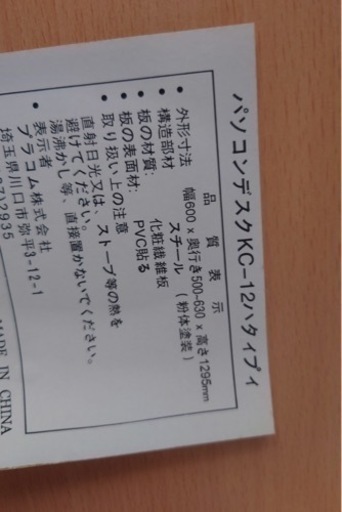 パソコンデスクKC-12ハタイプイ
品質表示
• 外形寸法 幅600 x 奥行き500-630 x 高さ1295mm
• 構造部材 スチール (粉体塗装)
• 板の材質: 化粧繊維板
• 板の表面材: PVC貼る
• 取り扱い上の注意
直射日光又は、ストーブ等の熱を
避けてください。
湯沸かし等、直接置かないでください。
• 表示者
プラコム株式会社
埼玉県川口市弥平3-12-1
2935
MADE IN CHINA